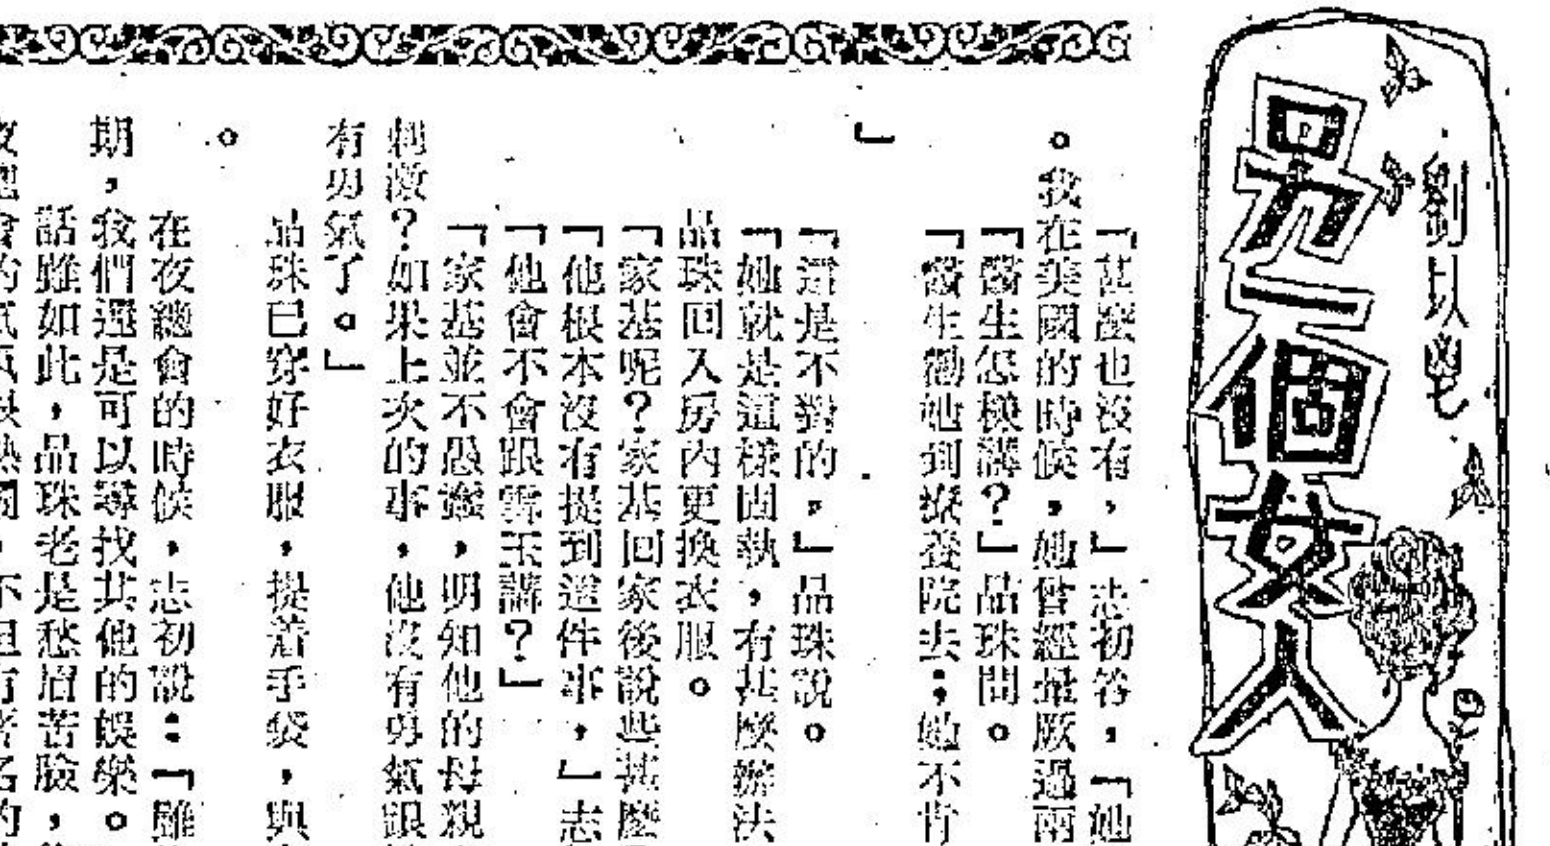 另一個女人
劉以鬯
「甚麼也沒有，」志初答，「她
。我在美國的時候，她曾經暈厥過兩
「醫生怎樣講？」品珠問。
「醫生勸她到療養院去；她不肯
」
「這是不對的，」品珠說。
「她就是這樣固執，有甚麼辦法
品珠回入房內更換衣服。
「家基呢？家基回家後說些甚麼
「他根本沒有提到這件事，」志
「他會不會跟雲玉講？」
「家基並不愚蠢，明知他的母親
刺激？如果上次的事，他沒有勇氣跟
有勇氣了。」
品珠已穿好衣服，提着手袋，與
。
在夜總會的時候，志初說：「雖
期，我們還是可以尋找其他的娛樂。
話雖如此，品珠老是愁眉苦臉，